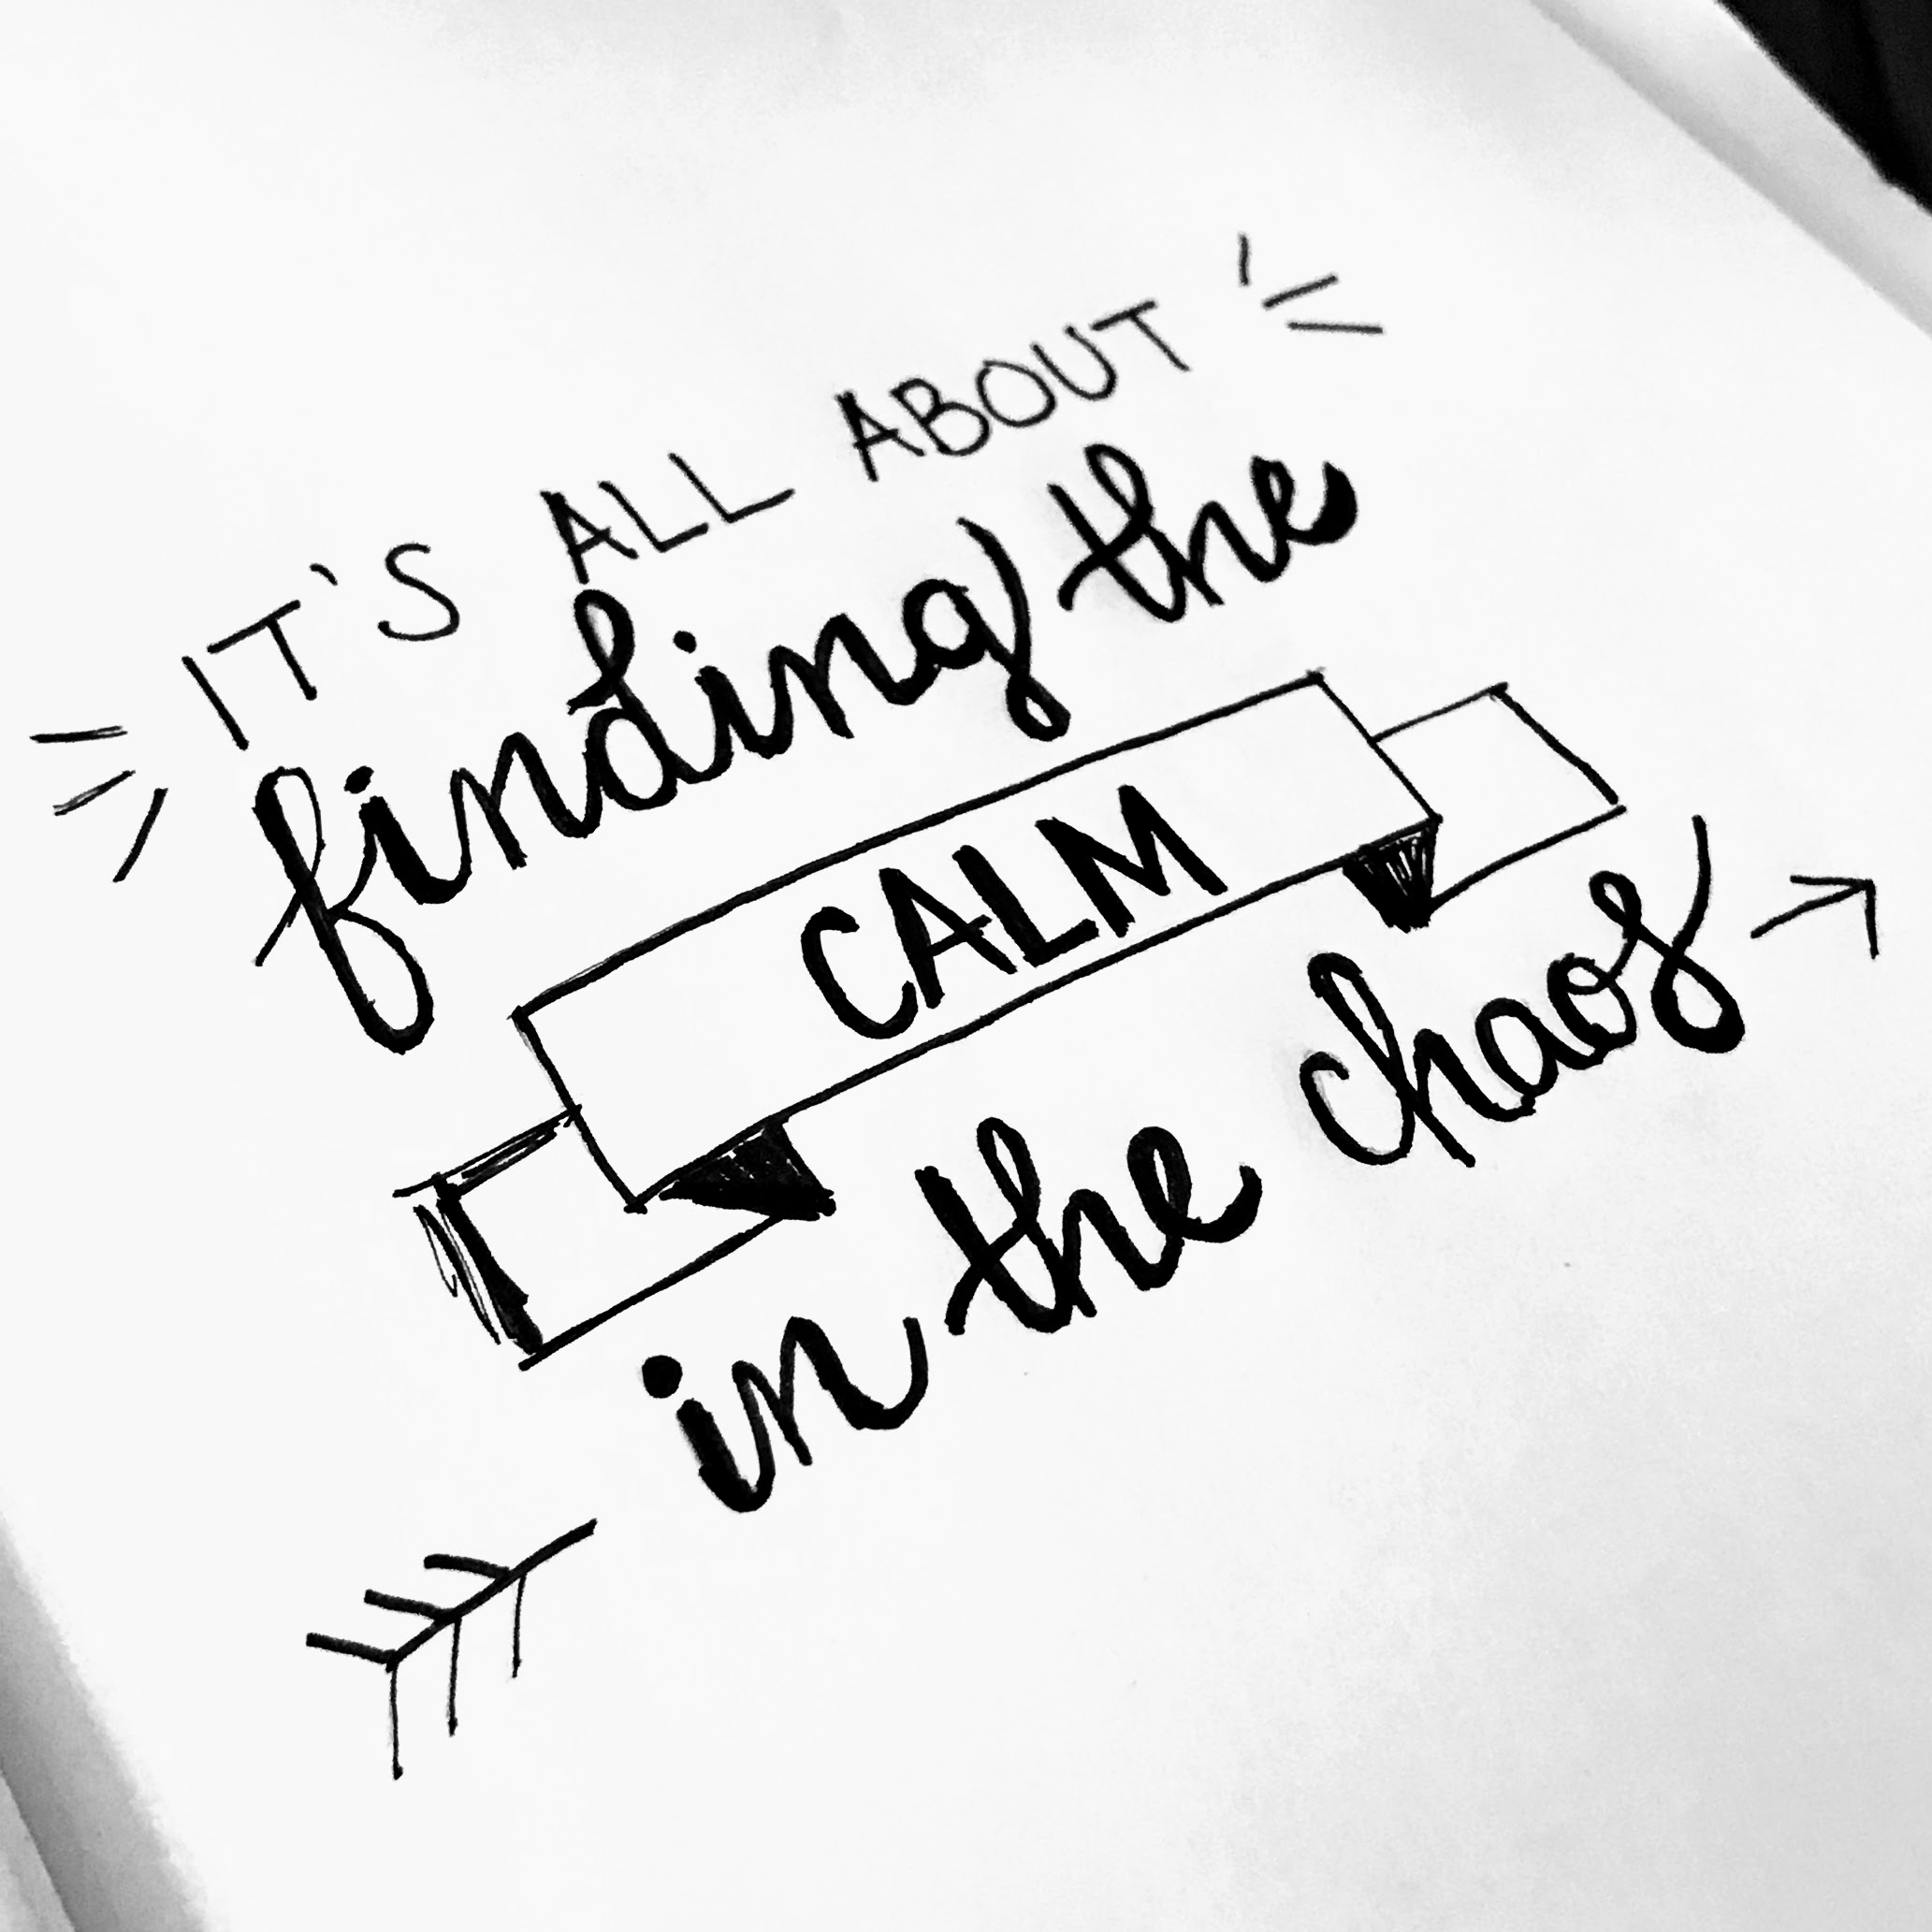 IT'S ALL ABOUT
finding the
CALM
in the chaos